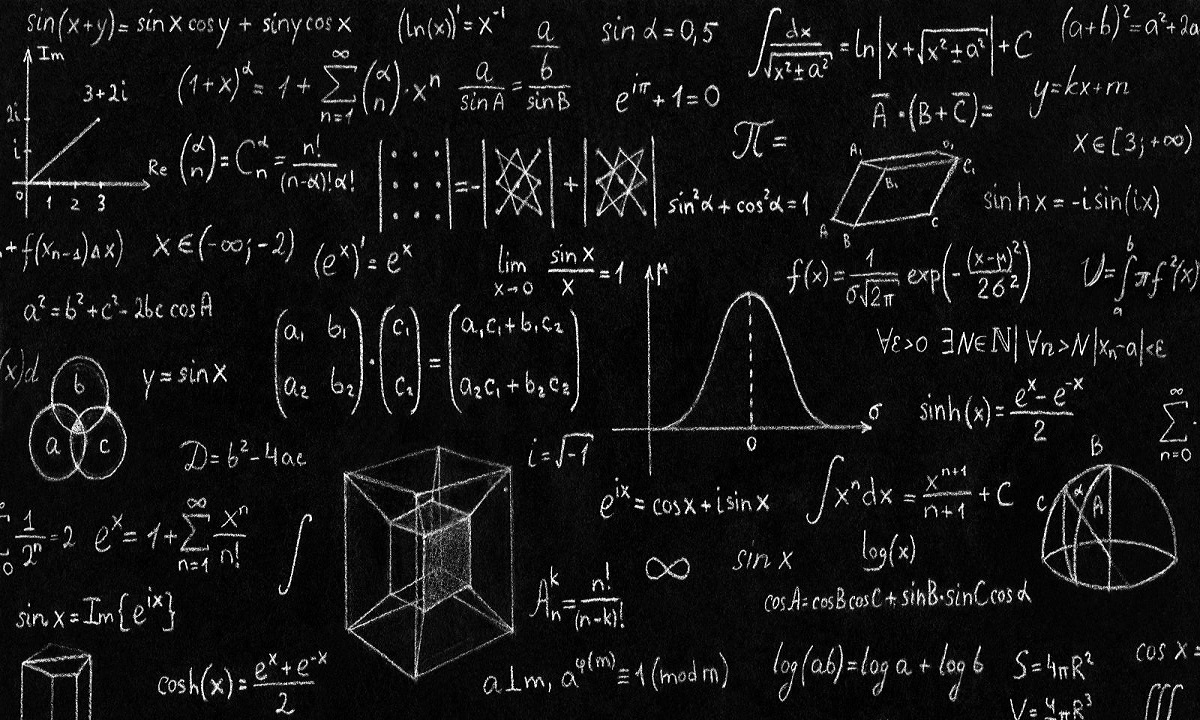 sin(x+y)= sinx cosy + siny cosx
(ln(x))'=x⁻¹
a/sinA = b/sinB
a/b
sin α=0,5
∫dx/√(x²±a²) =ln|x+√(x²±a²)|+C
(a+b)²=a²+2a
Im
3+2i
2i
i
0 1 2 3
Re
(1+x)^α = 1+ ∞∑n=1 (α n)·xⁿ
e^(iπ)+1=0
Ā·(B+C̄)=
y=kx+m
π=
x∈[3;+∞)
(α n)=C_n^α=n!/((n-α)!α!)
=-
+
sin²α+cos²α=1
A₁ D₁ B₁ C₁ A B C
sinhx=-isin(ix)
+f(x_{n-1})Δx)
x∈(-∞;-2)
(e^x)'=e^x
lim x→0 sinx/x=1
μ
σ
0
f(x)=1/(σ√2π) exp(-(x-μ)²/2σ²)
V=∫_a^b πf²(x)
a²=b²+c²-2bc cosA
(a₁ b₁ a₂ b₂)·(c₁ c₂)=(a₁c₁+b₁c₂ a₂c₁+b₂c₂)
∀ε>0 ∃N∈ℕ| ∀n>N|xₙ-a|<ε
(x)d
b a c
y=sinx
sinh(x)=(e^x-e^-x)/2
∞∑n=0
D=b²-4ac
i=√-1
B C α A
e^(ix)=cosx+isinx
∫xⁿdx=x^(n+1)/(n+1)+C
0 1/2ⁿ=2
e^x=1+∞∑n=1 xⁿ/n!
∫
∞
sinx
log(x)
A_n^k=n!/(n-k)!
cosA=cosBcosC+sinB·sinCcosα
sinx=Im{e^(ix)}
cosh(x)=(e^x+e^-x)/2
a⊥m, a^φ(m)≡1(modm)
log(ab)=log a + log b
S=4πR²
cosx=
V=4πR³
∭